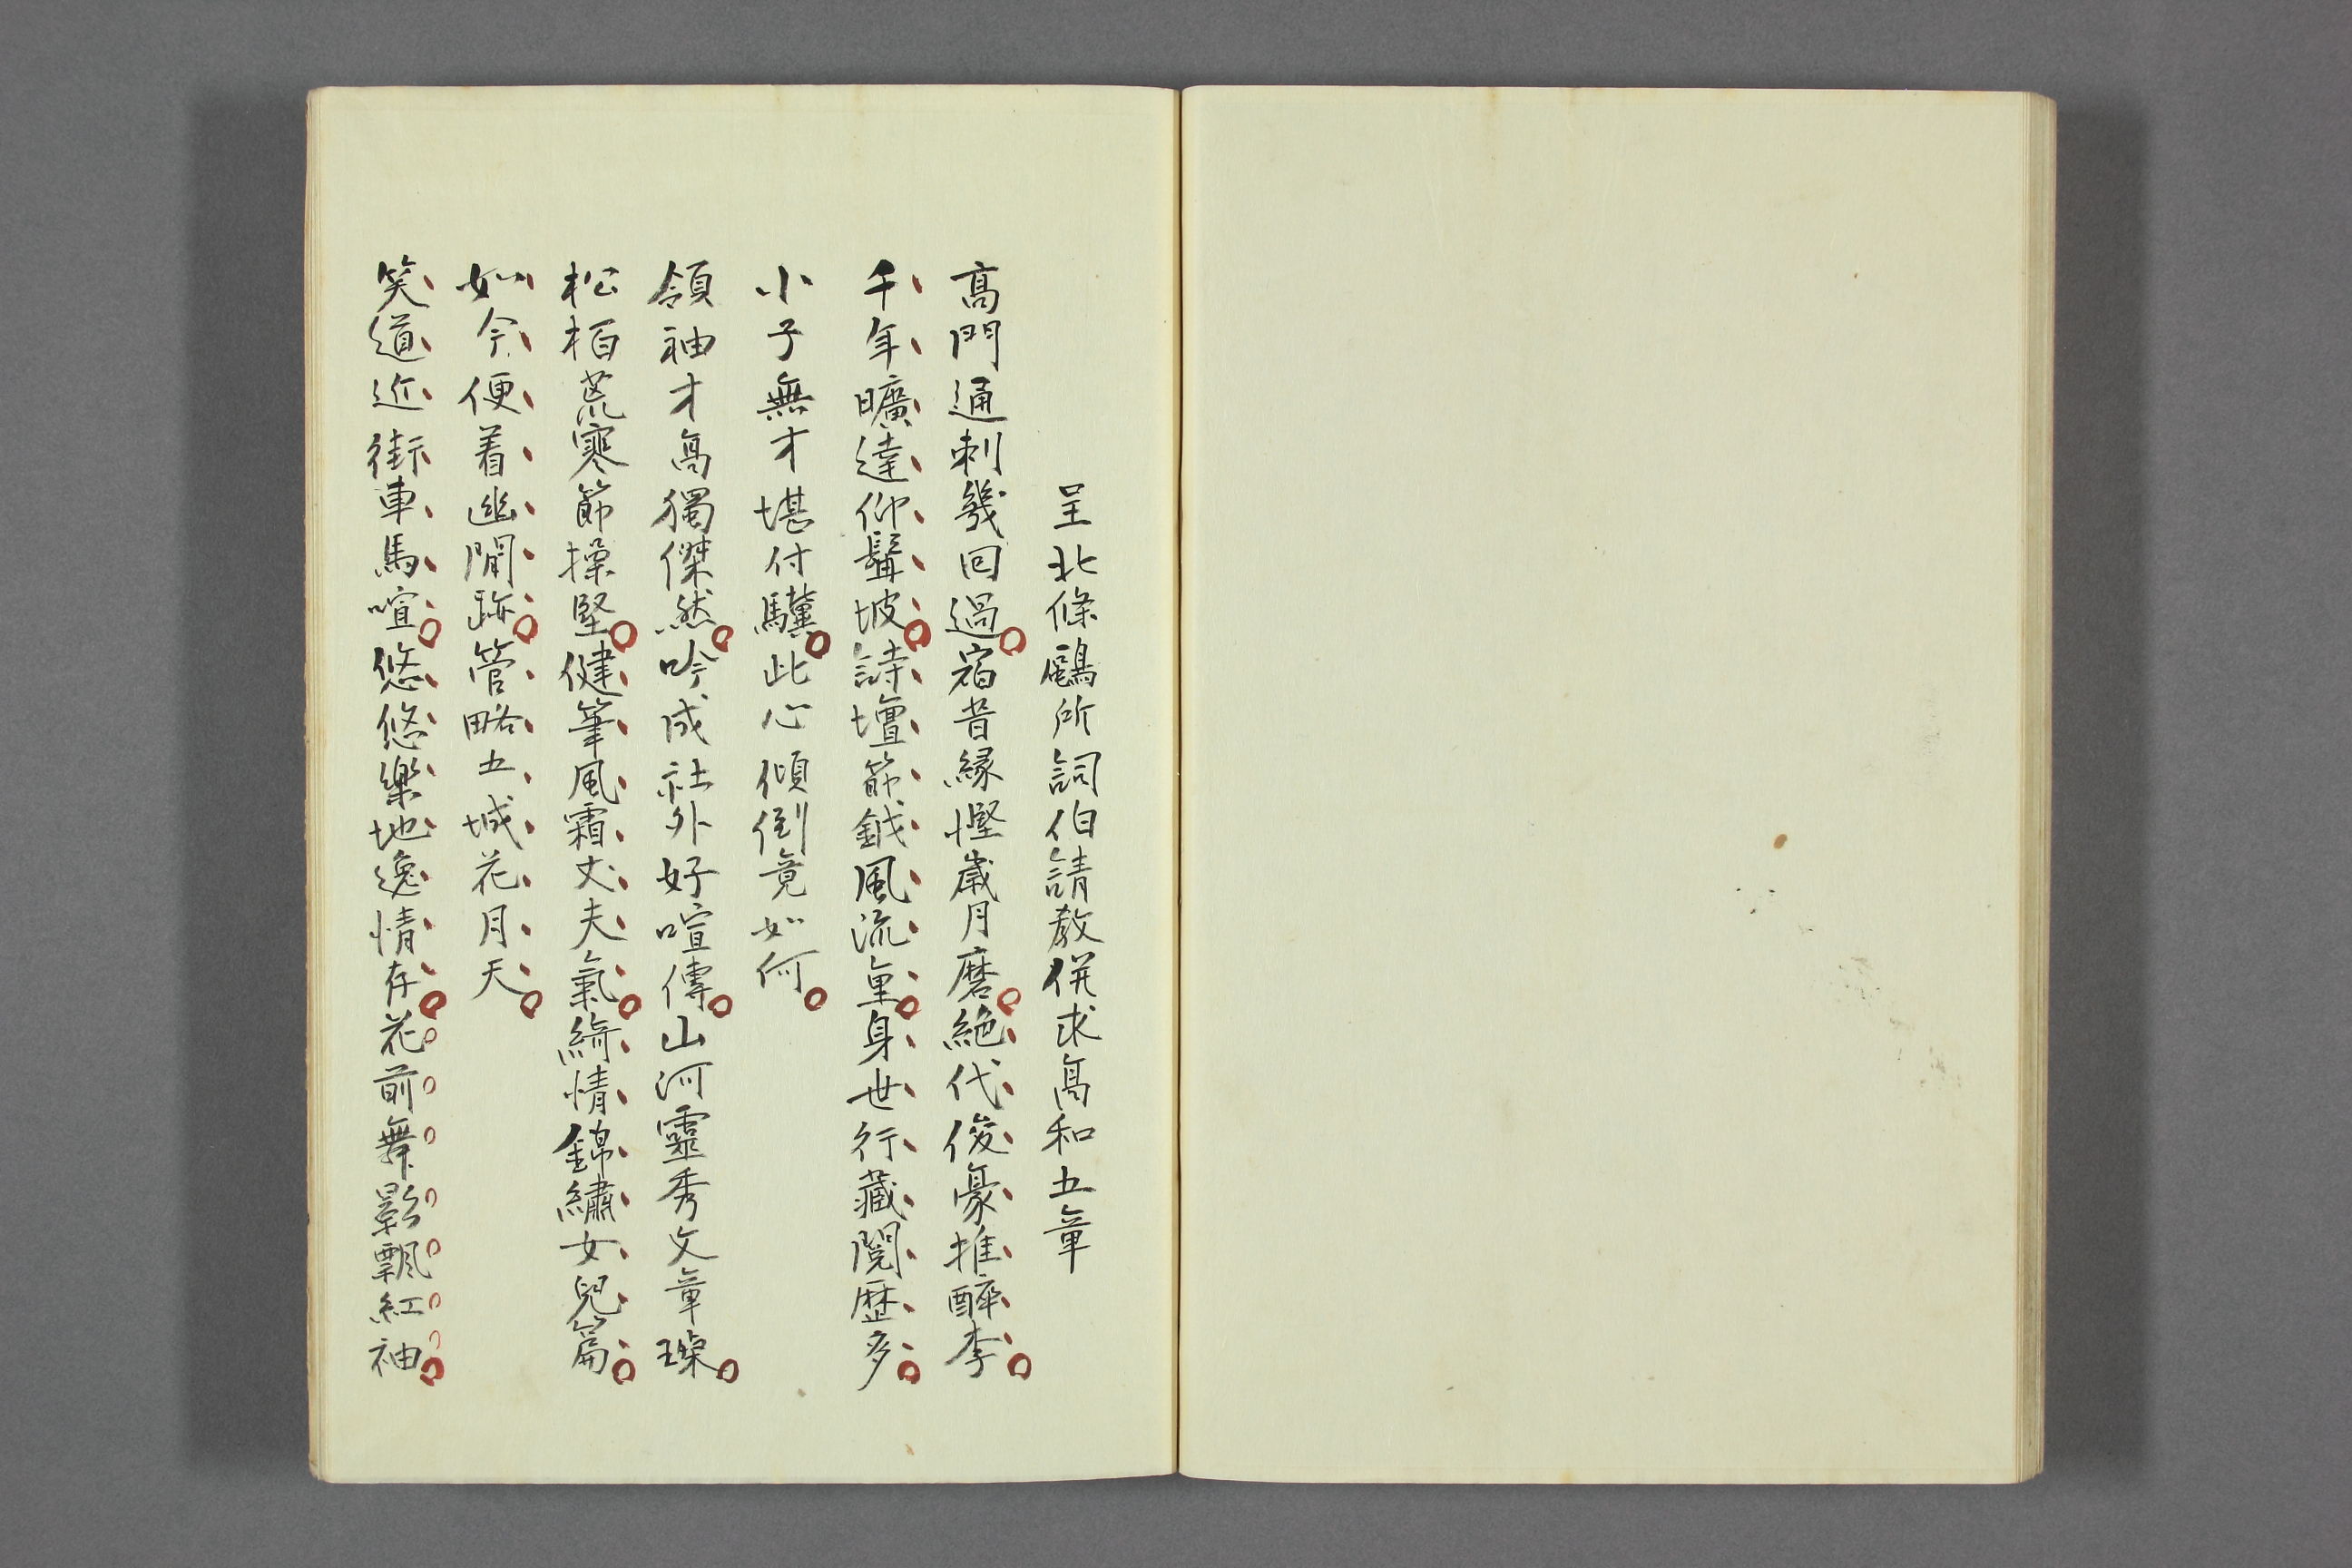 呈北條鷗所詞伯請教併求髙和五章
髙門通刺幾回過宿昔縁慳歳月磨絶代俊豪推醉李
千年曠達仰髯坡詩壇節鉞風流重身世行藏閲歴多
小子無才堪付驥此心傾倒竟如何
領袖才髙獨傑然吟成社外好喧傳山河靈秀文章璨
松栢荒寒節操堅健筆風霜丈夫氣綺情錦繡女兒篇
如今便着幽閒跡管略五城花月天
笑道近街車馬喧悠悠樂地逸情存花前舞影飄紅袖